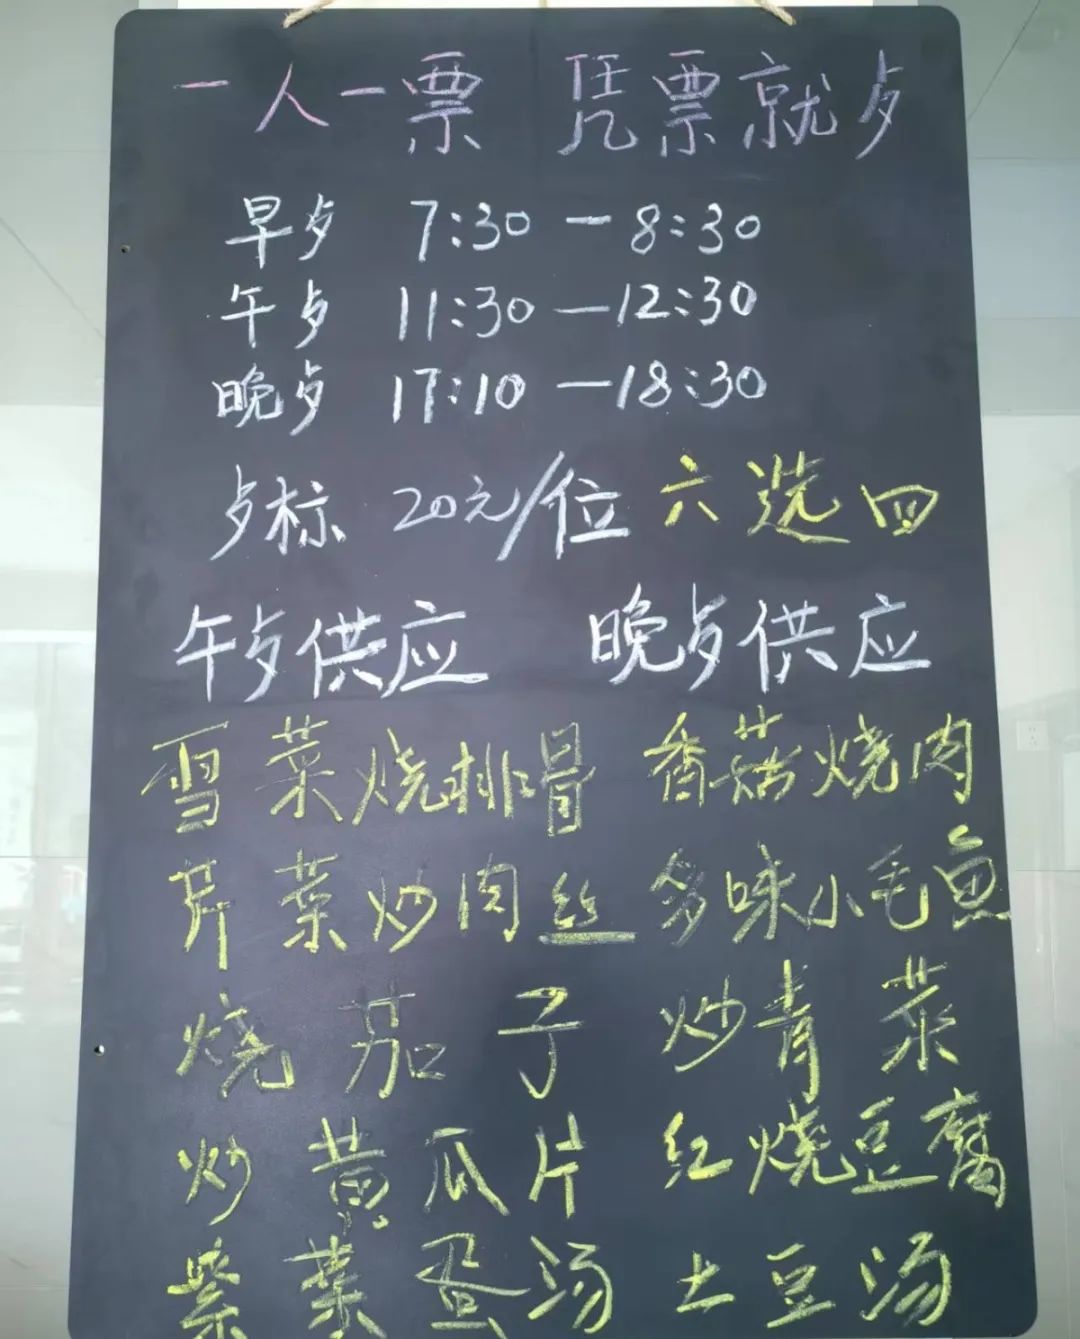 一人一票 凭票就歺
早歺 7:30—8:30
午歺 11:30—12:30
晚歺 17:10—18:30
歺标 20元/位 六选四
午歺供应 晚歺供应
雪菜烧排骨 香菇烧肉
芹菜炒肉丝 多味小毛鱼
烧茄子 炒青菜
炒黄瓜片 红烧豆腐
紫菜蛋汤 土豆汤